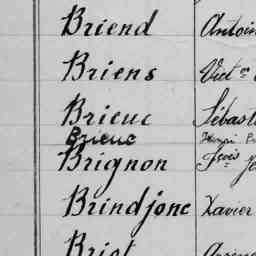 Briend Antoin
Briens Vict.
Brieuc Sébast
Brieuc Henri
Brignon Fçois
Brindjonc Xavier
Briot